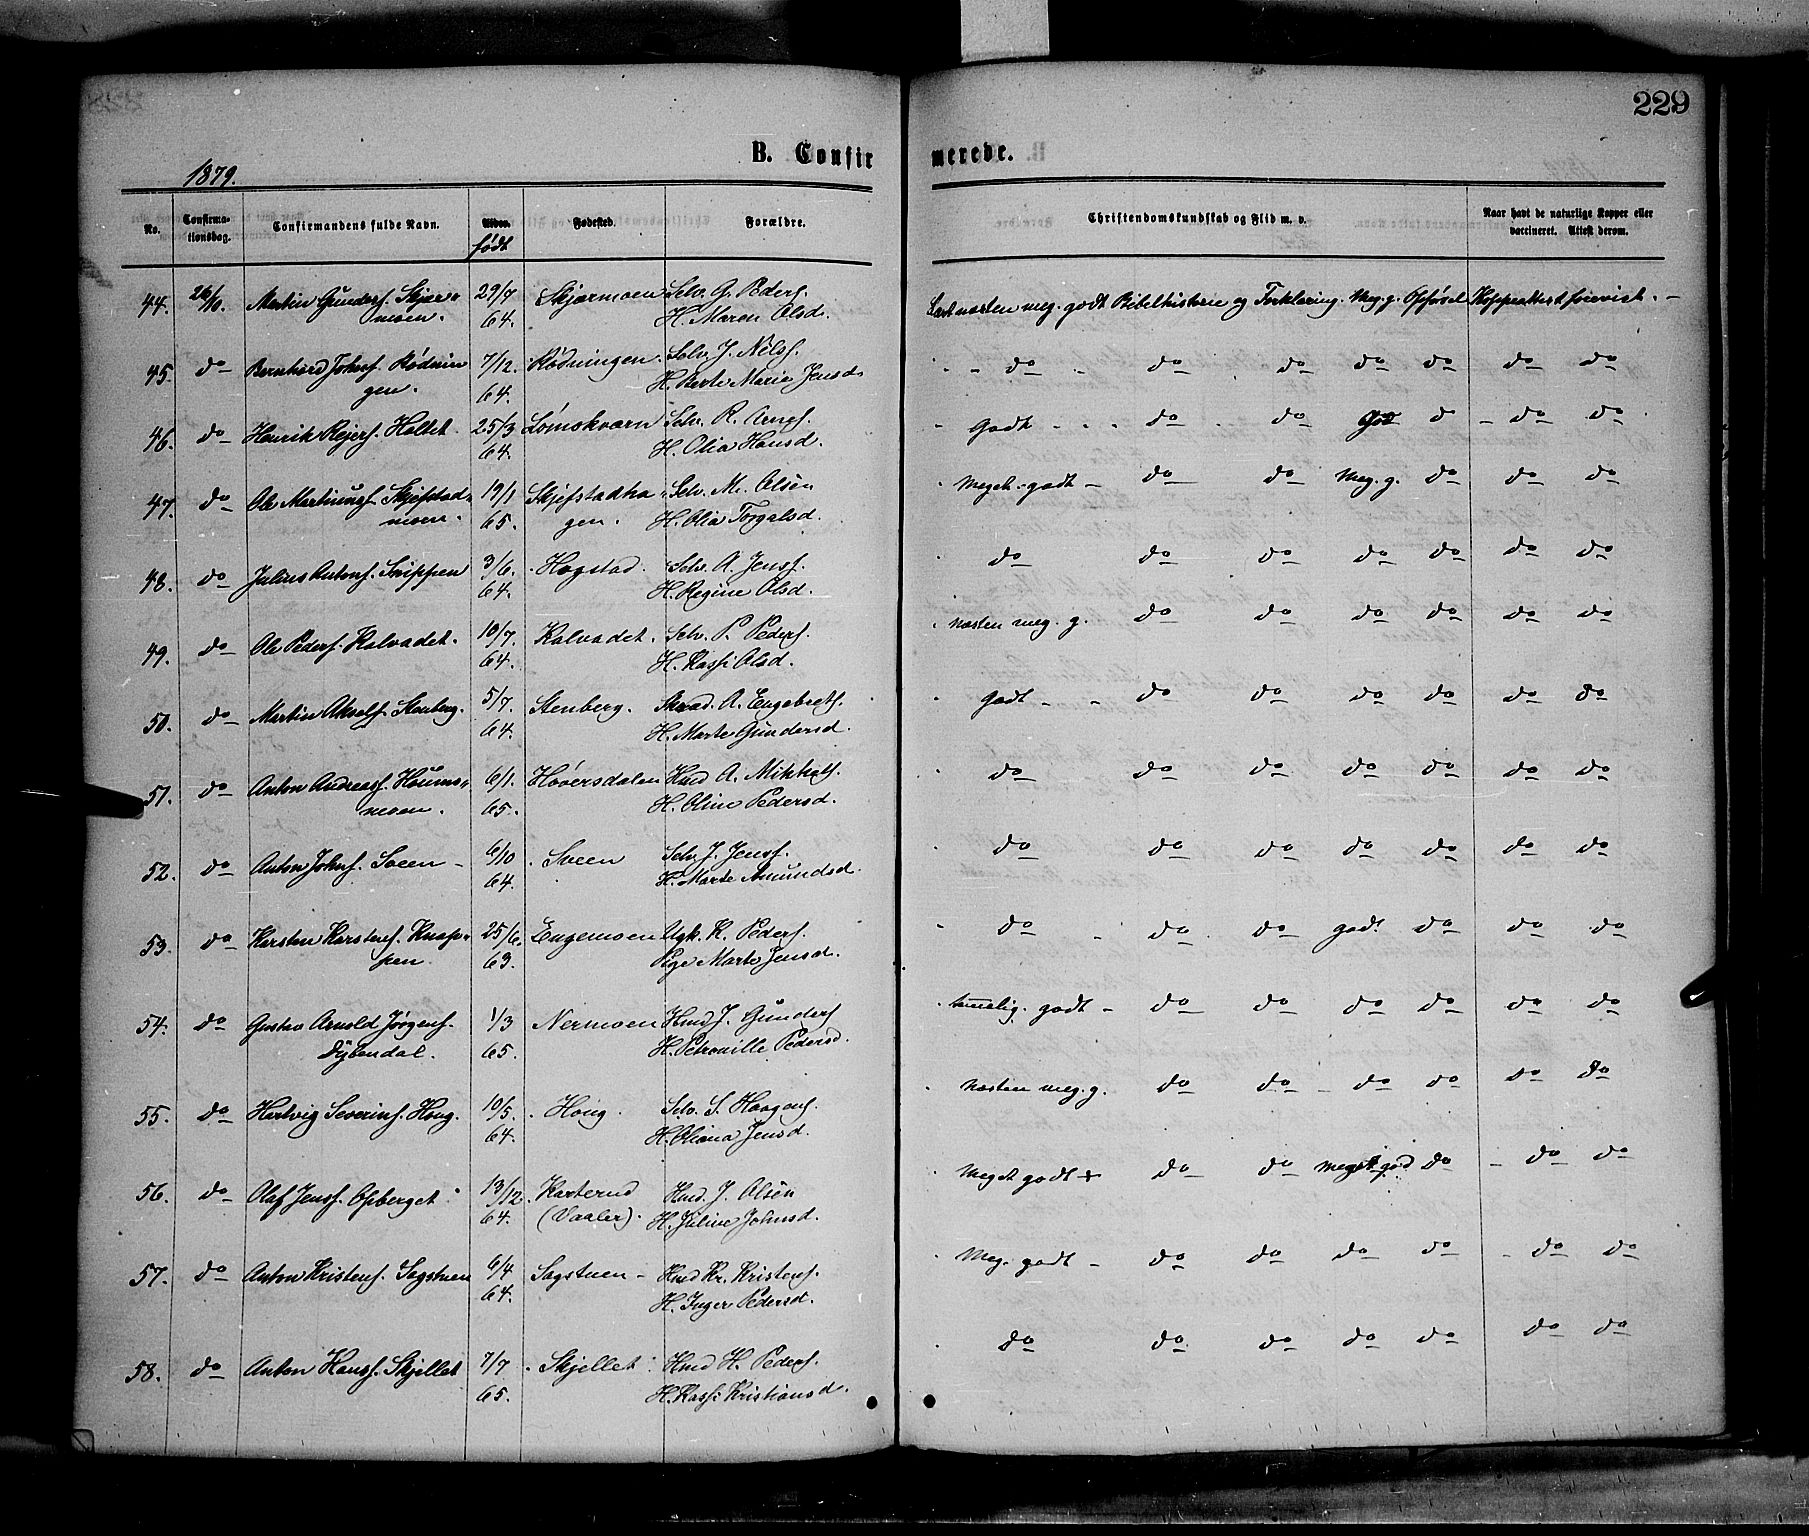 229
B. Confirmerede.
1879.
No. Confirmationsdag. Confirmandens fulde Navn. Alder. født Fødested. Forældre. Christendomskundskab og Flid m. v. Naar havt de naturlige Kopper eller vaccineret. Attest derom.
44. 26/10. Martin Gunders. Skjærmoen. 29/7 64. Skjærmoen Selv. G. Peders. H. Maren Olsd. Læst næsten meg. godt Bibelhistorie og Forklaring. Meg. g. Opførsel Koppeattest forevist. -
45. do Bernhard Johns. Rødningen. 7/12. 64. Rødningen. Selv. J. Nils. H. Berte Marie Jensd. do do do do do do do
46. do Henrik Rejers. Hollet. 25/3 64. Lømokværn Selv. R. Arnes. H. Olia Hansd. Godt do do God do do do
47. do Ole Martinus. Skjefstadmoen. 19/1 65. Skjefstadhagen. Selv. M. Olsen H. Olia Torgalsd. Meget godt - do do Meg. g. do do do
48. do Julius Antons. Snippen 3/6. 64. Hogstad. Selv. A. Jens. H. Regine Olsd. do do do do do do do
49. do Ole Peders. Kalvadet. 10/7. 64. Kalvadet. Selv. P. Peders. H. Kasfi Olsd. næsten meg. g. do do do do do do
50. do Martin Stenberg. 5/7. 64. Stenberg. A. Engebrets. H. Marte Gundersd. Godt - - do do do do do do
51. do Anton Andreas. 6/1. 65. Hoversdalen Hmd A. Mikkels. H. Oline Pedersd. do do do do do do do
52. do Anton Johns. Sveen - 6/10 64. Sveen Selv. J. Jens. H. Marte Amundsd. do do do do do do do
53. do Karsten Karstens. Knappen. 25/6. 63. Engemoen Ugk. K. Peders. Pige Marte Jensd. do do do god. do do do
54. do Gustav Arnold Jørgens. Dybendal. 1/3 65. Nermoen Hmd J. Gunders H. Petronille Pedersd. temmelig. godt - do do do do do do
55. do Hartvig Severins. Houg. 10/5. 64. Houg. Selv. S. Haagens. H. Oliana Jensd. Næsten meg. g. do do do do do do
56. do Olaf Jenss. Opberget 13/12. 64. Karterud (Vaaler). Hmd. J. Olsen H. Juline Johnsd. Meget godt do do meget god do do do
57. do Anton Kristens. Sagstuen 6/4 64. Sagstuen - Hmd Kr. Kristens. H. Inger Pedersd. Meg. godt - do do do do do do
58. do Anton Hanss. Skjellet 7/7 65. Skjellet Hmd H. Peders. H. Kasfi Kristiansd. do do do do do do do